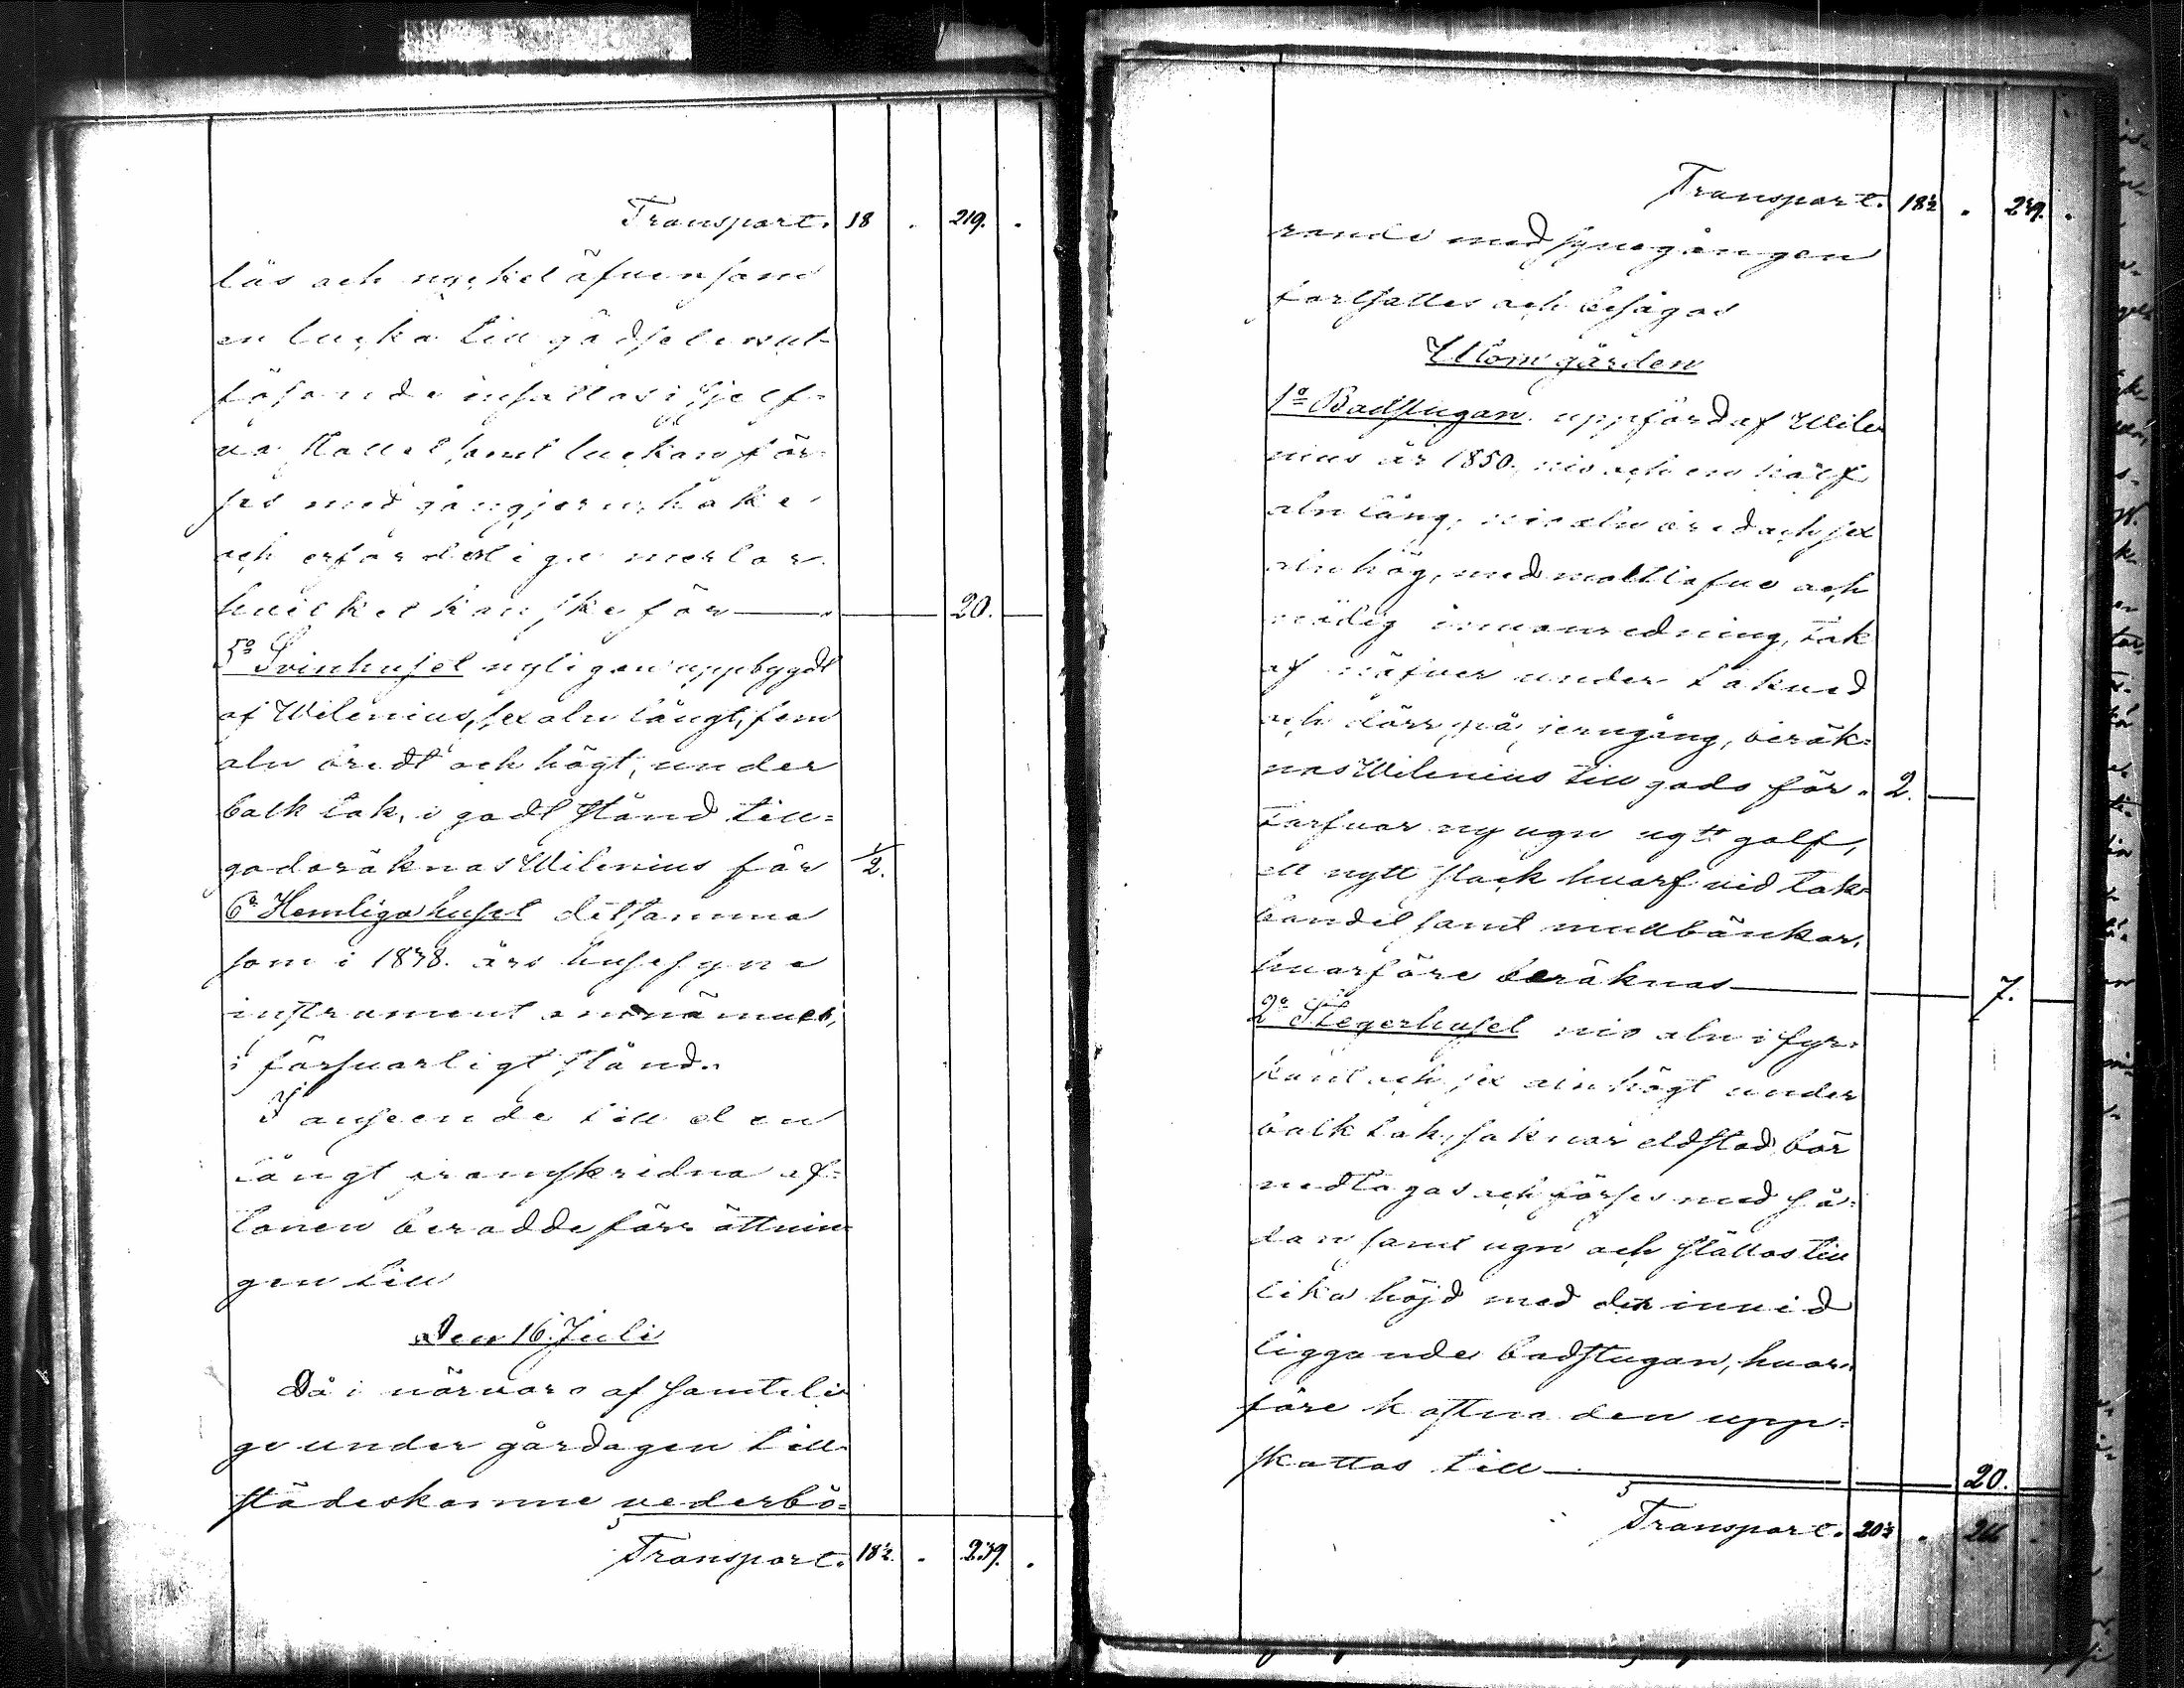 Transport. 18 . 219. .
lås och nyckel äfvensom
en lucka till gödselens ut-
fösande insättas i sjelf-
va stallet samt luckan för-
ses med gångjern, hake
och erforderliga merlor
hvilket kan ske för — 20. —
5o Svinhuset nyligen uppbygdt
af Wilenius, sex aln långt, fem
aln bredt och högt, under
balk tak, i godt stånd till=
godoräknas Wilenius för ½.
6o Hemligahuset detsamma
som i 1838. års husesyns
instrument omnämnes,
i försvarligt stånd.
I anseende till den
långt framskridna af-
tonen beroddes förrättnin-
gen till
Den 16. Juli
Då i närvaro af samteli-
ge under gårdagen till-
städeskomne vederbö=
Transport. 18½. . 239. .
Transport. 18½ . 239. .
rande med synegången
fortsattes och besågos
Utom gården
1o Badstugan uppförd af Wile-
nius år 1850. nio och en half
aln lång, nio aln bred och sex
aln hög, med maltlafve och
nödig innanredning, tak
af näfver under takved
och dörr på jerngång, beräk=
nas Wilenius till godo för. 2. —
Tarfvar ny ugn nytt golf,
ett nytt stock hvarf vid tak-
bandet samt mullbänkar,
hvarföre beräknas — 7. —
2o Stegerhuset nio aln i fyr-
kant och sex aln högt under
balk tak, saknar eldstad, bör
nedtagas och förses med så-
dan samt ugn och ställas till
lika höjd med den invid
liggande badstugan, hvar-
före kostnaden upp=
skattas till — 20.
Transport. 20½ . 266 .